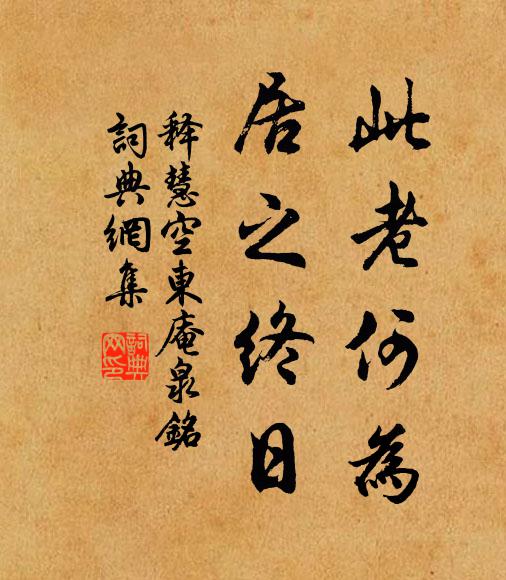 此老何為
居之終日
释慧空東庵泉銘
詞典網集
詞典网印